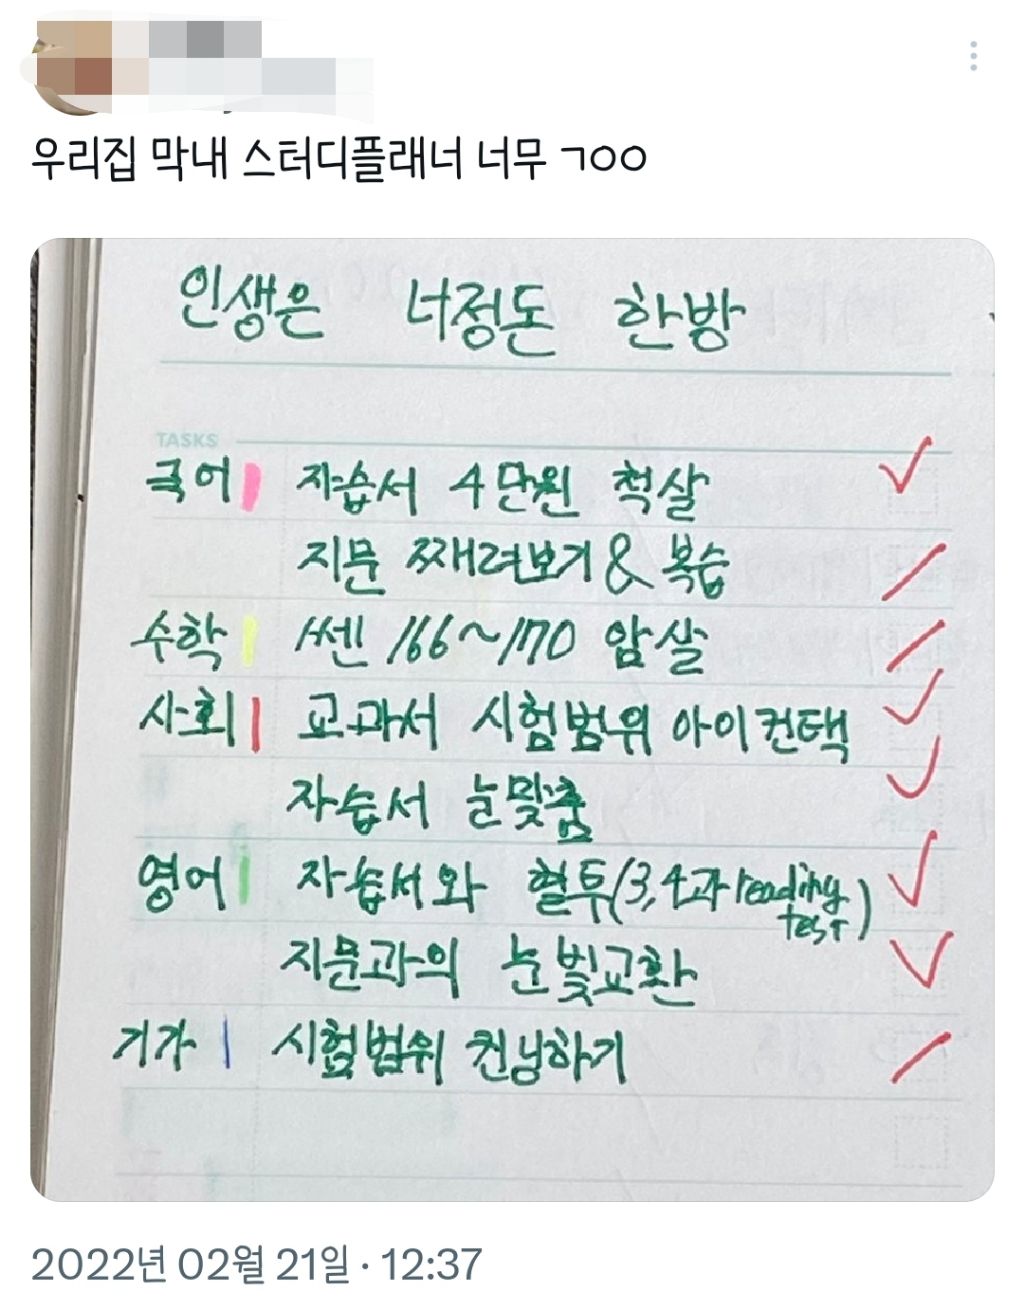 우리집 막내 스터디플래너 너무 ㄱㅇㅇ
인생은 너정돈 한방
TASKS
국어 자습서 4단원 척살
지문 째려보기 & 복습
수학 쎈 166~170 암살
사회 교과서 시험범위 아이컨택
자습서 눈맞춤
영어 자습서와 혈투(3,4과 reading test)
지문과의 눈빛교환
기가 시험범위 컨닝하기
2022년 02월 21일 · 12:37